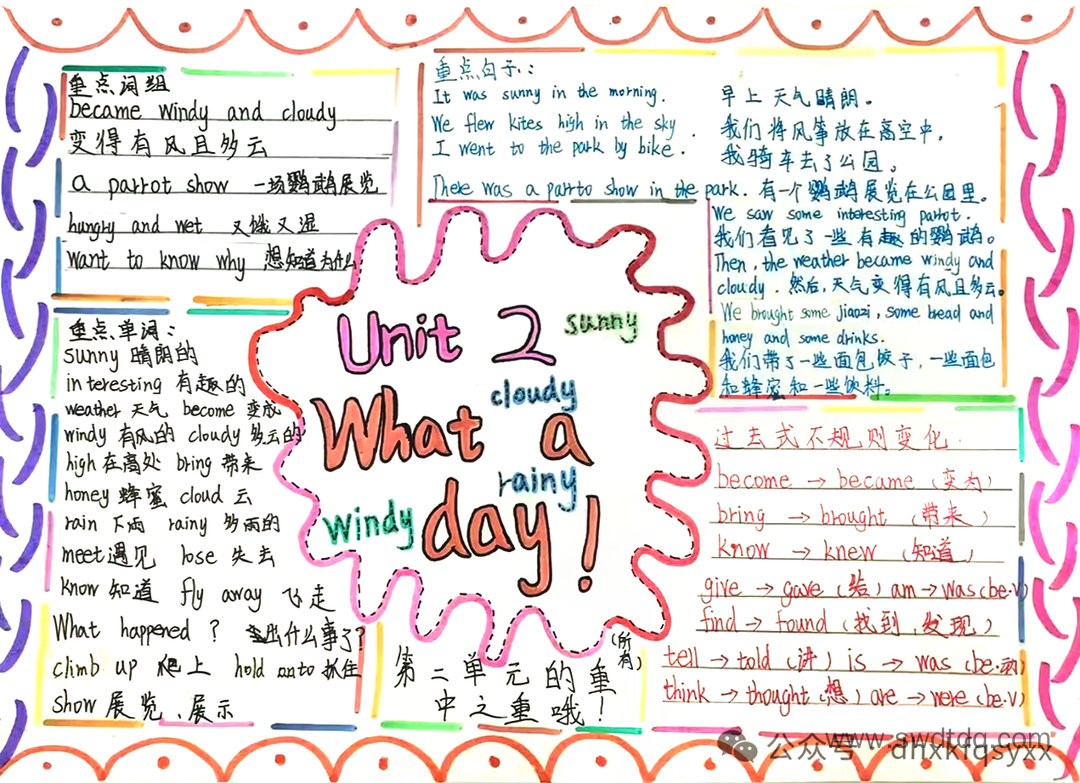 重点词组
became windy and cloudy
变得有风且多云
a parrot show 一场鹦鹉展览
hungry and wet 又饿又湿
want to know why 想知道为什么
重点句子：
It was sunny in the morning.
早上天气晴朗。
We flew kites high in the sky.
我们将风筝放在高空中，
I went to the park by bike.
我骑车去了公园。
There was a parrto show in the park. 有一个鹦鹉展览在公园里。
We saw some interesting parrot.
我们看见了一些有趣的鹦鹉。
Then, the weather became windy and
cloudy. 然后，天气变得有风且多云。
We brought some jiaozi, some bread and
honey and some drinks.
我们带了一些面包饺子，一些面包
和蜂蜜和一些饮料。
重点单词：
sunny 晴朗的
interesting 有趣的
weather 天气 become 变成
windy 有风的 cloudy 多云的
high 在高处 bring 带来
honey 蜂蜜 cloud 云
rain 下雨 rainy 多雨的
meet 遇见 lose 失去
know 知道 fly away 飞走
What happened? 出什么事了?
climb up 爬上 hold onto 抓住
show 展览、展示
Unit 2
sunny
cloudy
What a
rainy
windy
day!
(所有)
第二单元的重
中之重哦!
过去式不规则变化
become → became (变为)
bring → brought (带来)
know → knew (知道)
give → gave (给) am → was (be.v)
find → found (找到，发现)
tell → told (讲) is → was (be.动)
think → thought (想) are → were (be.v)
公众号 dhxklqsyxx
www.swdtdq.com